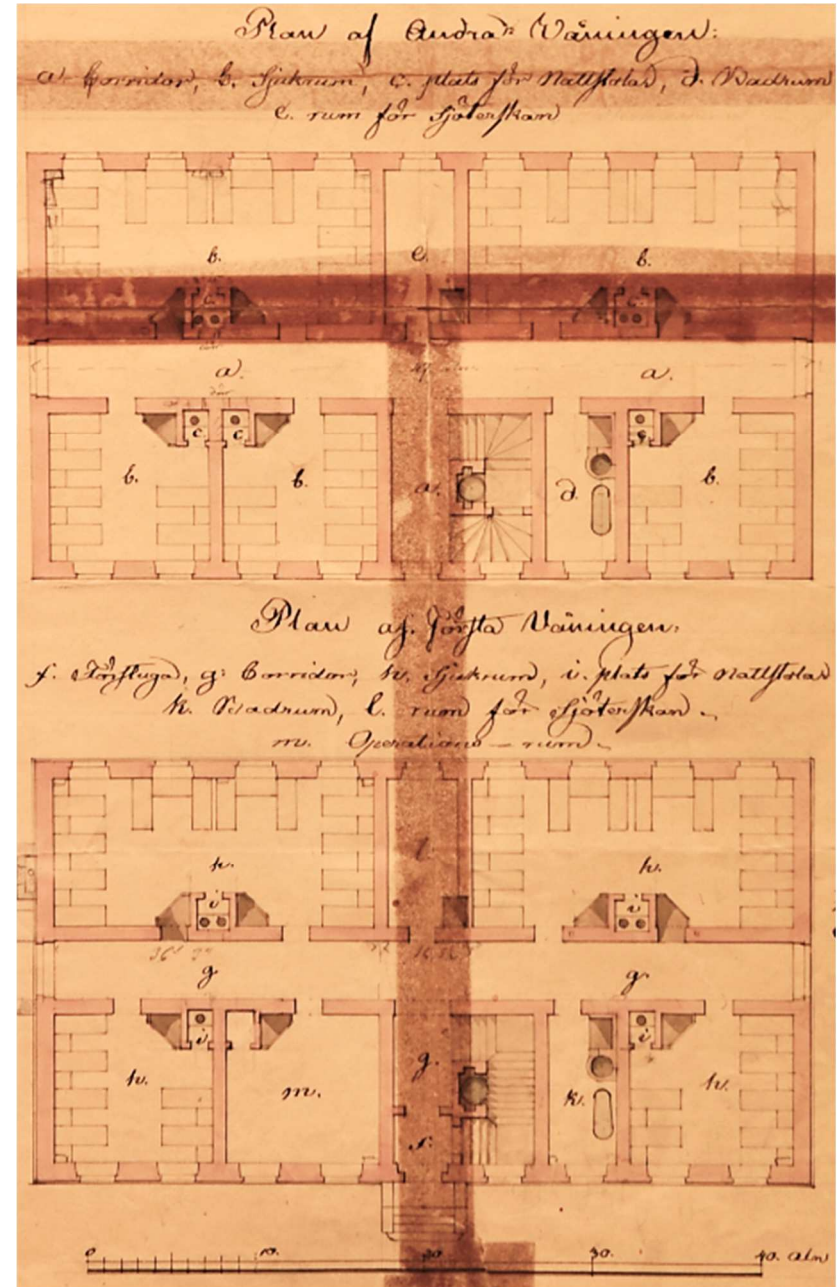 Plan af Andra Våningen:
a. Corridor, b. Sjukrum, c. plats för Nattstolar, d. Badrum
e. rum för Sjöterskan
b. e. b.
c. c.
a. a.
c c c
b. b. a. d. b.
Plan af Första Våningen:
f. Förstuga, g. Corridor, h. Sjukrum, i. plats för Nattstolar
k. Badrum, l. rum för Sjöterskan.
m. Operations-rum.
h. l. h.
i i
g g
i i
h. m. g. k. h.
f.
0 10. 20 30. 40. aln